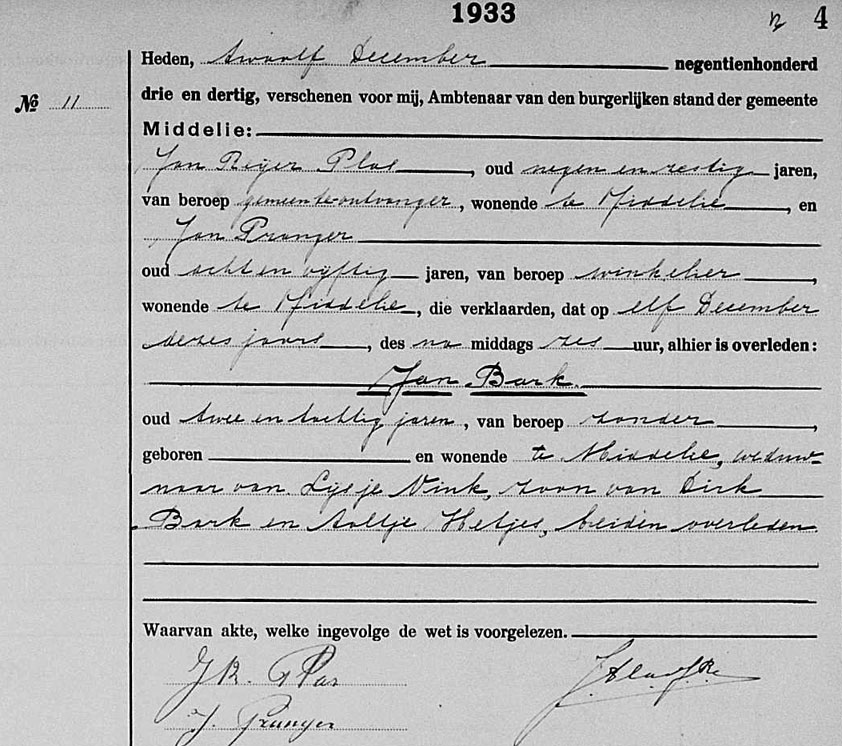 1933
4
Heden, twaalf December negentienhonderd
No 11
drie en dertig, verschenen voor mij, Ambtenaar van den burgerlijken stand der gemeente
Middelie:
Jan Reijer Plas, oud negen en zestig jaren,
van beroep gemeente-ontvanger, wonende te Middelie, en
Jan Pranger
oud acht en vijftig jaren, van beroep winkelier,
wonende te Middelie, die verklaarden, dat op elf December
dezes jaars, des na middags zes uur, alhier is overleden:
Jan Bark.
oud twee en tachtig jaren, van beroep zonder,
geboren en wonende te Middelie, weduw-
naar van Lijsje Vink, zoon van Dirk
Bark en Aaltje Hetjes, beiden overleden
Waarvan akte, welke ingevolge de wet is voorgelezen.
J R. Plas
J. Pranger